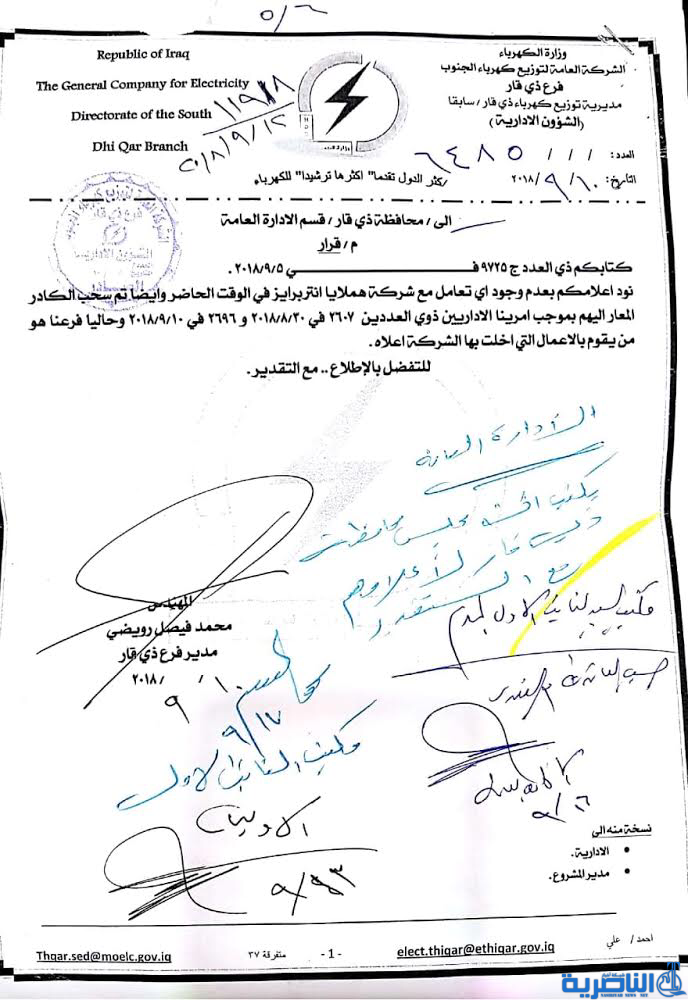 ٥/٦
Republic of Iraq
The General Company for Electricity
Directorate of the South
Dhi Qar Branch
١١٩٨٨
وزارة الكهرباء
الشركة العامة لتوزيع كهرباء الجنوب
فرع ذي قار
مديرية توزيع كهرباء ذي قار/ سابقا
(الشؤون الادارية)
العدد: ٦٤٨٥
التاريخ: ٢٠١٨/٩/١٠
اكثر الدول تقدما" اكثرها ترشيدا" للكهرباء
الى/ محافظة ذي قار/ قسم الادارة العامة
م/ قرار
كتابكم ذي العدد ج ٩٧٢٥ فـــي ٢٠١٨/٩/٥ .
نود اعلامكم بعدم وجود اي تعامل مع شركة هملايا انتربرايز في الوقت الحاضر وايضا تم سحب الكادر
المعار اليهم بموجب امرينا الاداريين ذوي العددين ٢٦٠٧ في ٢٠١٨/٨/٣٠ و ٢٦٩٦ في ٢٠١٨/٩/١٠ وحاليا فرعنا هو
من يقوم بالاعمال التي اخلت بها الشركة اعلاه.
للتفضل بالإطلاع .. مع التقدير.
الأدارة العامة
مع التقدير
المهندس
محمد فيصل رويضي
مدير فرع ذي قار
٢٠١٨/٩/١٠
٩/١٧
مكتب النائب الاول
الاوليات
٩/٢٣
نسخة منه الى
• الادارية.
• مدير المشروع.
احمد/ علي
elect.thiqar@ethiqar.gov.iq
- 1 -
متفرقة ٣٧
Thqar.sed@moelc.gov.iq
الناصرية